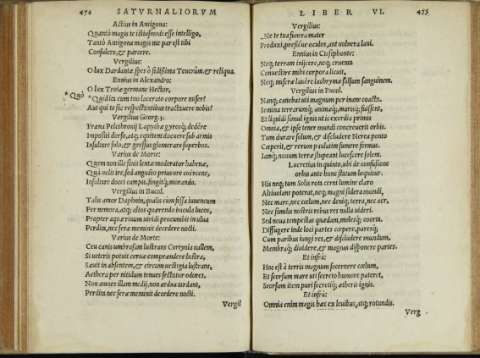 474 SATVRNALIORVM
Actius in Antigona:
Quantò magis te istiusmodi esse intelligo,
Tantò Antigona magis me par est tibi
Consulere, & parcere.
Vergilius:
O lux Dardaniæ spes ô fidißima Teucrûm, & reliqua.
Ennius in Alexandro:
O lux Troiæ germane Hector,
Quid ita cum tuo lacerato corpore miser?
Aut qui te sic respectantibus tractauere nobis?
Vergilius Georg. 3.
Frena Pelethronij Lapythæ gyrosq; dedêre
Impositi dorso, atq; equitem docuere sub armis
Insultare solo, & gressus glomerare superbos.
Varius de Morte:
Quem non ille sinit lentæ moderator habenæ,
Qua velit ire, sed angusto prius orbe coërcens,
Insultare docet campis, fingitq; morando.
Vergilius in Bucol.
Talis amor Daphnin, qualis cum fessa iuuencum
Per nemora, atq; altos quærendo bucula lucos,
Propter aquæ riuum viridi procumbit in vlua
Perdita, nec seræ meminit decedere nocti.
Varius de Morte:
Ceu canis vmbrosam lustrans Cortynia vallem,
Si veteris potuit ceruæ comprendere lustra,
Sæuit in absentem, & circum vestigia lustrans,
Aethera per nitidum tenues sectatur odores,
Non amnes illam medij, non ardua tardant,
Perdita nec seræ meminit decedere nocti.
Vergil
LIBER VI. 475
Vergilius:
Ne te tua funera mater
Produxi, preßiue oculos, aut vulnera laui.
Ennius in Ctesiphonte:
Neq; terram inijcere, neq; cruenta
Conuestire mihi corpora licuit,
Neq; miseræ lauêre lachrymæ salsum sanguinem.
Vergilius in Bucol.
Namq; canebat uti magnum per inane coacta
Semina terrarúmq; animæq; marisq; fuissent,
Et liquidi simul ignis: ut his exordia primis
Omnia, & ipse tener mundi concreuerit orbis.
Tum durare solum, & discludere Nerea ponto
Cœperit, & rerum paulatim sumere formas:
Iamq; nouum terræ stupeant lucescere solem.
Lucretius in quinto, vbi de confusione
orbis ante hunc statum loquitur.
His neq; tum Solis rota cerni lumine claro
Altiuolans poterat, neq; magni sidera mundi,
Nec mare, nec cœlum, nec deniq; terra, nec aër,
Nec similis nostris rebus res vlla videri.
Sed noua tempestas quædam, molesq; coorta.
Diffugere inde loci partes cœpere, paresq;
Cum paribus iungi res, & discludere mundum.
Membraq; diuidere, & magnas disponere partes.
Et infrà:
Hoc est à terris magnum secernere cœlum,
Et seorsum mare vti secreto humore pateret,
Seorsum item puri secretiq; ætheris ignis.
Et infrà:
Omnia enim magis hæc ex leuibus, atq; rotundis.
Verg